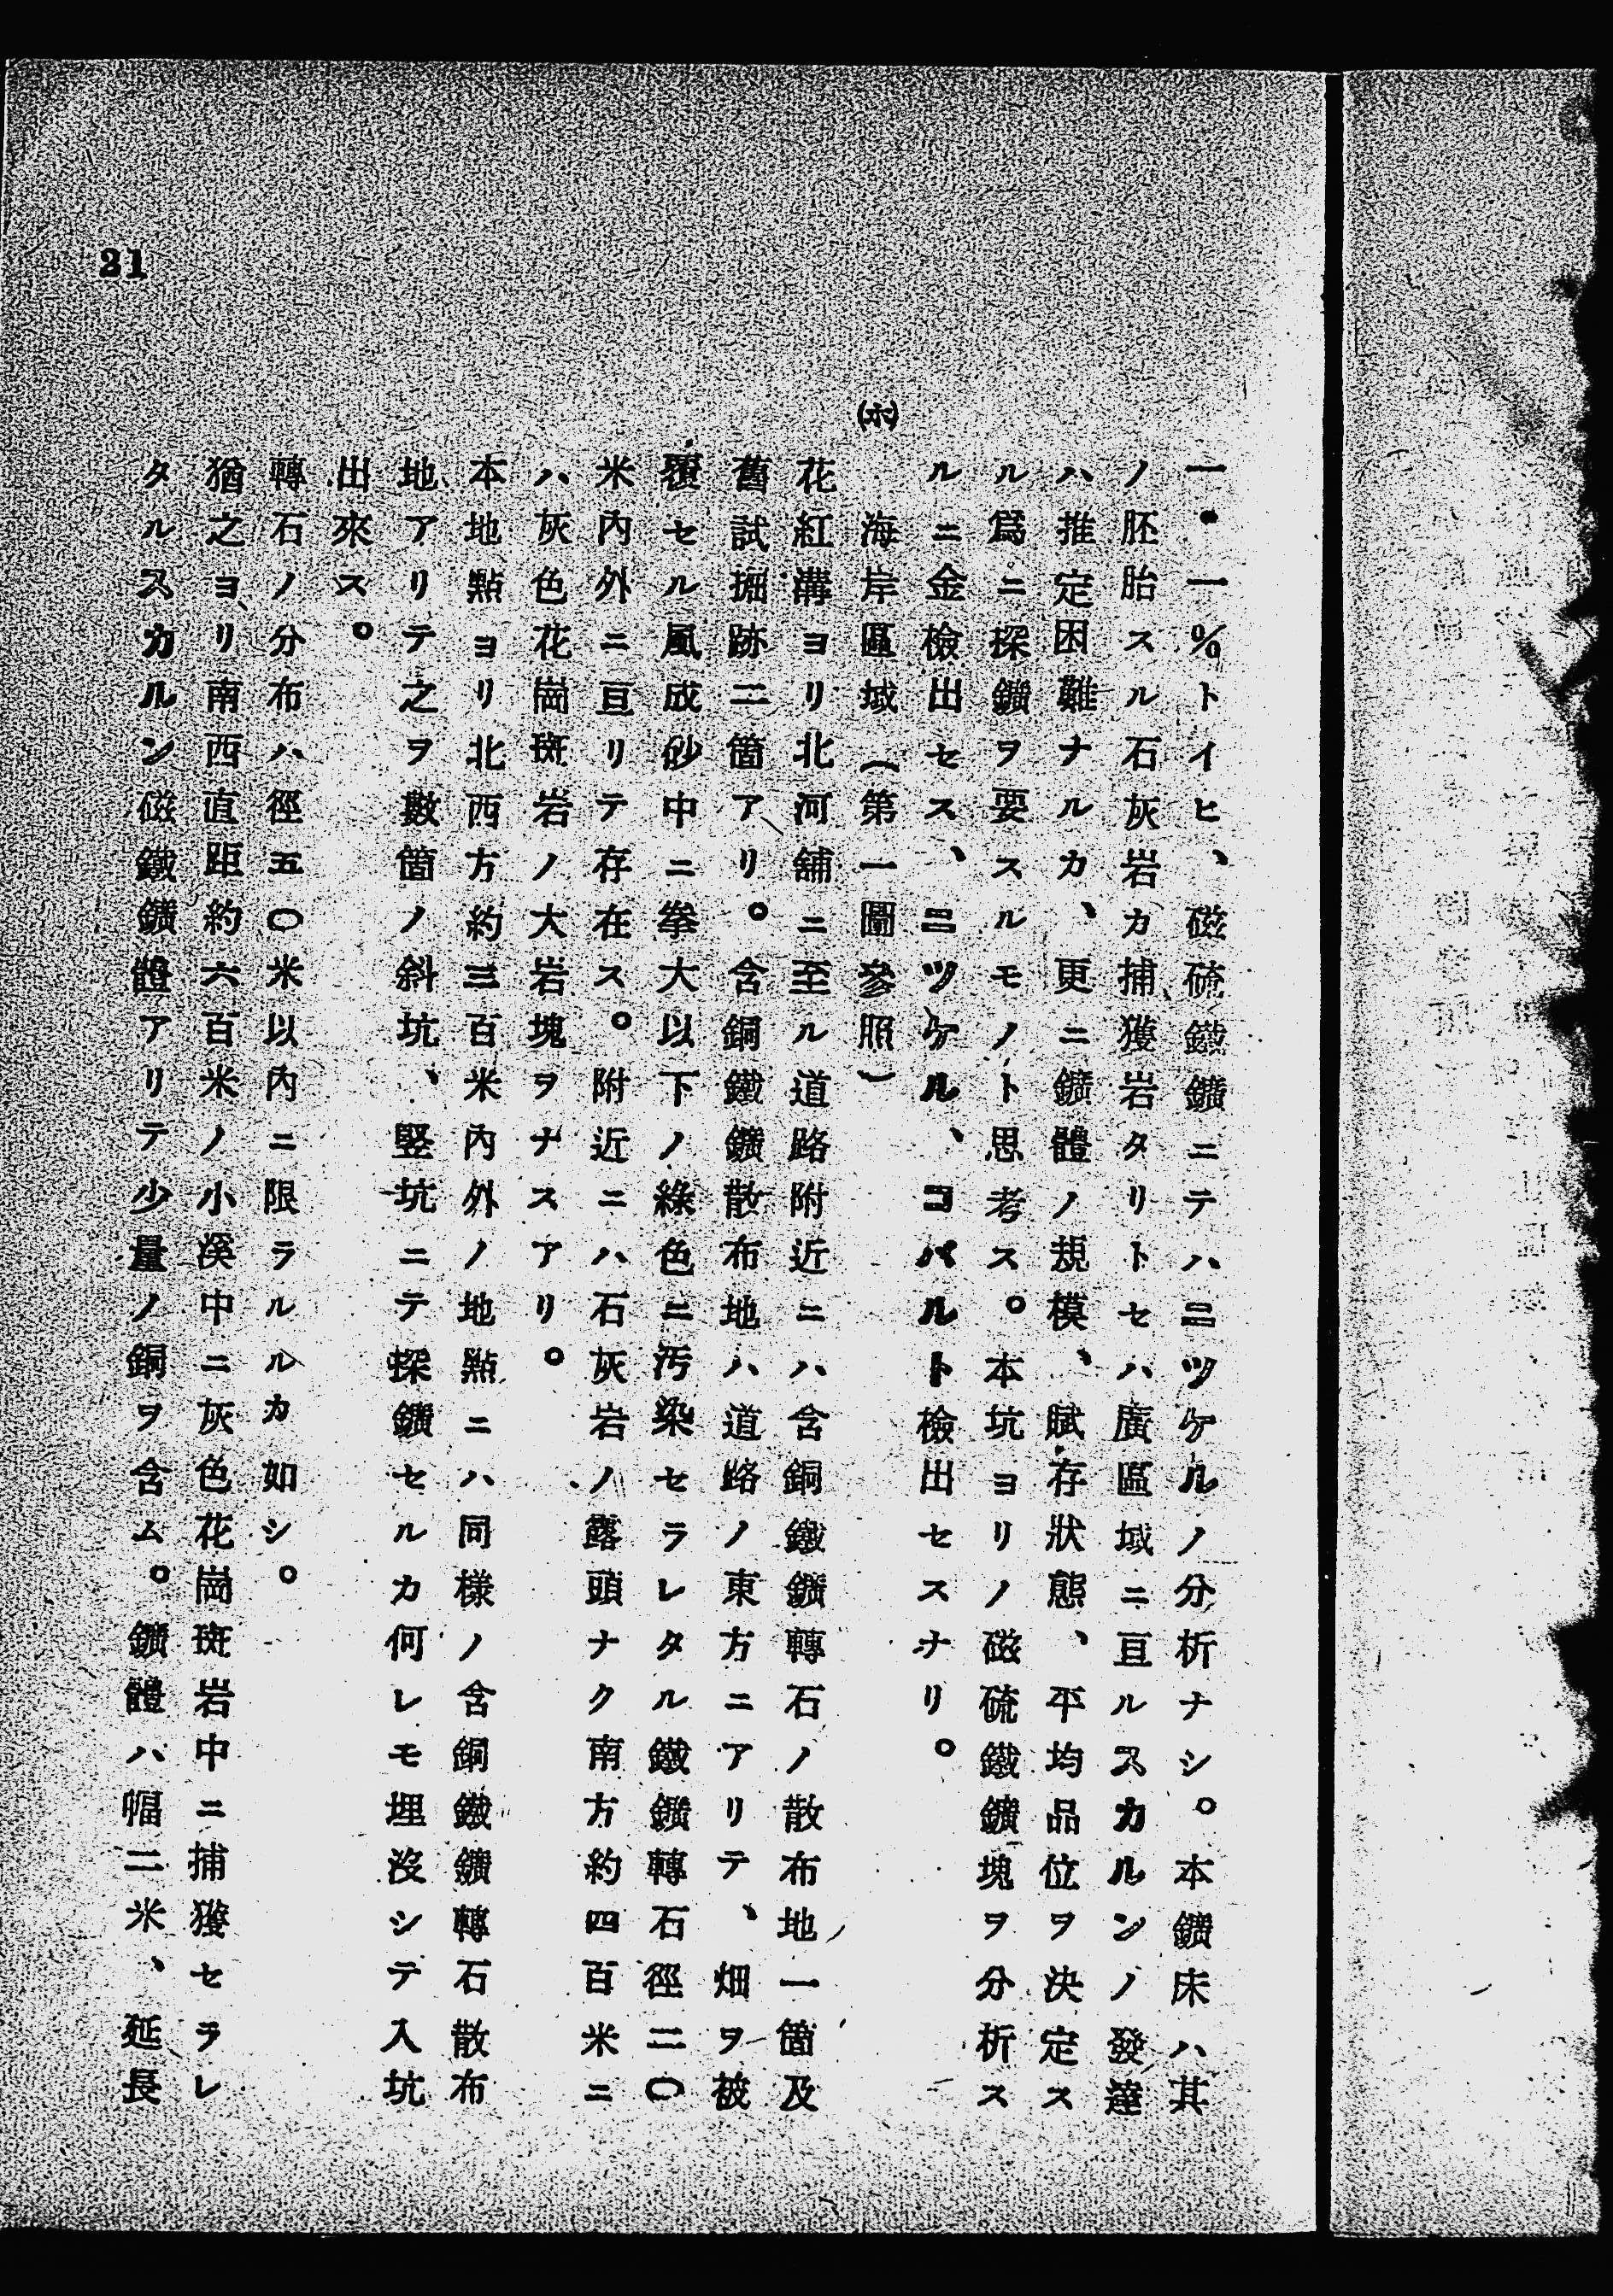 一・一%トイヒ、磁硫鐵鑛ニテハニツケルノ分析ナシ。本鑛床ハ其
ノ胚胎スル石灰岩カ捕獲岩タリトセハ廣區域ニ亘ルスカルンノ發達
ハ推定困難ナルカ、更ニ鑛體ノ規模、賦存狀態、平均品位ヲ決定ス
ル爲ニ探鑛ヲ要スルモノト思考ス。本坑ヨリノ磁硫鐵鑛塊ヲ分析ス
ルニ金檢出セス、ニツケル、コバルト檢出セスナリ。
(ホ)海岸區域(第一圖參照)
花紅溝ヨリ北河舖ニ至ル道路附近ニハ含銅鐵鑛轉石ノ散布地一箇及
舊試掘跡二箇アリ。含銅鐵鑛散布地ハ道路ノ東方ニアリテ、畑ヲ被
覆セル風成砂中ニ拳大以下ノ綠色ニ汚染セラレタル鐵鑛轉石徑二〇
米內外ニ亘リテ存在ス。附近ニハ石灰岩ノ露頭ナク南方約四百米ニ
ハ灰色花崗斑岩ノ大岩塊ヲナスアリ。
本地點ヨリ北西方約三百米內外ノ地點ニハ同樣ノ含銅鐵鑛轉石散布
地アリテ之ヲ數箇ノ斜坑、竪坑ニテ探鑛セルカ何レモ埋沒シテ入坑
出來ス。
轉石ノ分布ハ徑五〇米以內ニ限ラルルカ如シ。
猶之ヨリ南西直距約六百米ノ小溪中ニ灰色花崗斑岩中ニ捕獲セラレ
タルスカルン磁鐵鑛體アリテ少量ノ銅ヲ含ム。鑛體ハ幅二米、延長
31